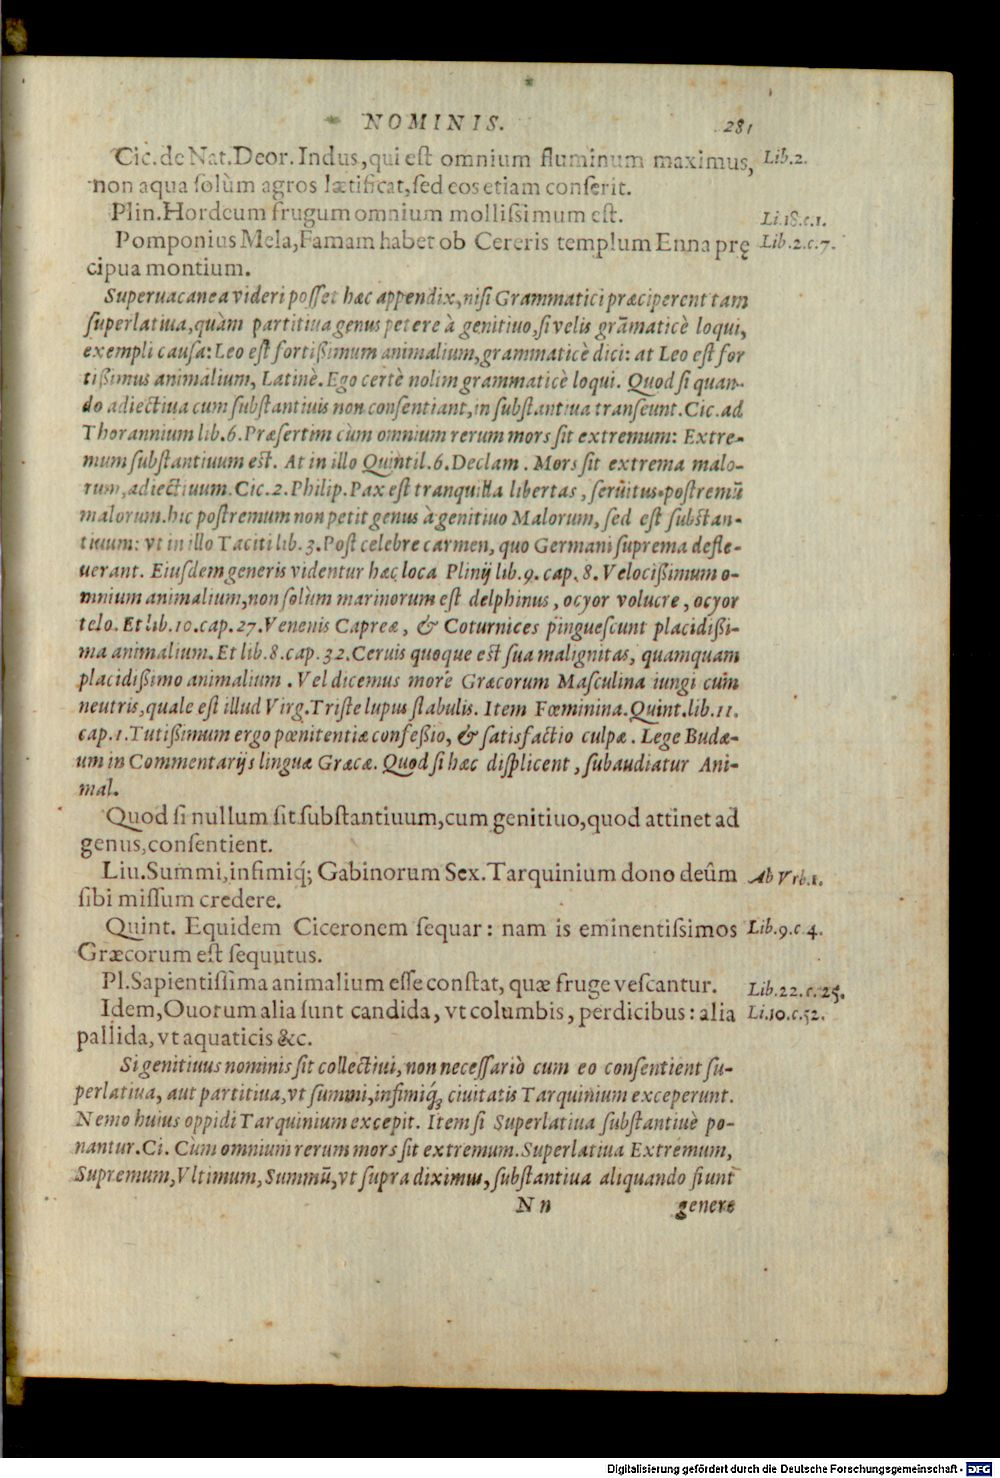 NOMINIS. 281
Cic. de Nat. Deor. Indus, qui est omnium fluminum maximus, Lib.2.
non aqua solùm agros lætificat, sed eos etiam conserit.
Plin. Hordeum frugum omnium mollissimum est. Li.18.c.1.
Pomponius Mela, Famam habet ob Cereris templum Enna prę Lib.2.c.7.
cipua montium.
Superuacanea videri posset hæc appendix, nisi Grammatici præciperent tam
superlatiua, quàm partitiua genus petere à genitiuo, si velis grāmaticè loqui,
exempli causa: Leo est fortißimum animalium, grammaticè dici: at Leo est for
tißimus animalium, Latinè. Ego certè nolim grammaticè loqui. Quod si quan-
do adiectiua cum substantiuis non consentiant, in substantiua transeunt. Cic. ad
Thorannium lib. 6. Præsertim cùm omnium rerum mors sit extremum: Extre-
mum substantiuum est. At in illo Quintil. 6. Declam. Mors sit extrema malo-
rum, adiectiuum. Cic. 2. Philip. Pax est tranquilla libertas, seruitus postremū
malorum. hic postremum non petit genus à genitiuo Malorum, sed est substan-
tiuum: vt in illo Taciti lib. 3. Post celebre carmen, quo Germani suprema defle-
uerant. Eiusdem generis videntur hæc loca Plinij lib. 9. cap. 8. Velocißimum o-
mnium animalium, non solùm marinorum est delphinus, ocyor volucre, ocyor
telo. Et lib. 10. cap. 27. Venenis Capreæ, & Coturnices pinguescunt placidißi-
ma animalium. Et lib. 8. cap. 32. Ceruis quoque est sua malignitas, quamquam
placidißimo animalium. Vel dicemus more Græcorum Masculina iungi cum
neutris, quale est illud Virg. Triste lupus stabulis. Item Fœminina. Quint. lib. 11.
cap. 1. Tutißimum ergo pœnitentiæ confeßio, & satisfactio culpæ. Lege Budæ-
um in Commentarijs linguæ Græcæ. Quod si hæc displicent, subaudiatur Ani-
mal.
Quod si nullum sit substantiuum, cum genitiuo, quod attinet ad
genus, consentient.
Liu. Summi, infimiq́; Gabinorum Sex. Tarquinium dono deûm Ab Vrb.1.
sibi missum credere.
Quint. Equidem Ciceronem sequar: nam is eminentissimos Lib.9.c 4.
Græcorum est sequutus.
Pl. Sapientissima animalium esse constat, quæ fruge vescantur. Lib.22.c.25.
Idem, Ouorum alia sunt candida, vt columbis, perdicibus: alia Li.10.c.52.
pallida, vt aquaticis &c.
Si genitiuus nominis sit collectiui, non necessariò cum eo consentient su-
perlatiua, aut partitiua, vt summi, infimiq́; ciuitatis Tarquinium exceperunt.
Nemo huius oppidi Tarquinium excepit. Item si Superlatiua substantiuè po-
nantur. Ci. Cùm omnium rerum mors sit extremum. Superlatiua Extremum,
Supremum, Vltimum, Summū, vt supra diximus, substantiua aliquando fiunt
N n genere
Digitalisierung gefördert durch die Deutsche Forschungsgemeinschaft - DFG